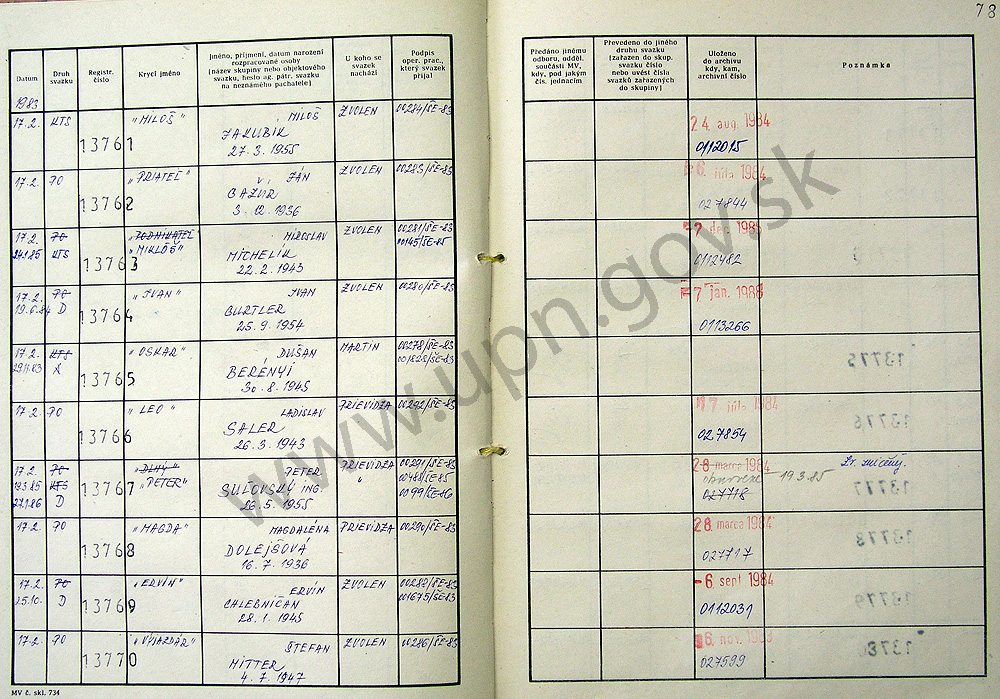 78
Datum
Druh svazku
Registr. číslo
Krycí jméno
Jméno, příjmení, datum narození
rozpracované osoby
(název skupiny nebo objektového
svazku, heslo ag. pátr. svazku
na neznámého pachatele)
U koho se svazek nachází
Podpis oper. prac., který svazek přijal
Předáno jinému
odboru, odděl.
součásti MV,
kdy, pod jakým
čís. jednacím
Převedeno do jiného
druhu svazku
(zařazen do skup.
svazku číslo
nebo uvést čísla
svazků zařazených
do skupiny)
Uloženo
do archivu
kdy, kam,
archivní číslo
Poznámka
1983
17.2. KTS 13761 „MILOŠ" MILOŠ ZVOLEN 00284/ŠE-83 24. aug. 1984
JAKUBÍK 0112015
27. 3. 1955
17.2. PO 13762 „PRIATEĽ" JÁN ZVOLEN 00283/ŠE-83 6. júla 1984
GAŽUR 027844
3. 12. 1936
17.2. PO 13763 „PODNIKATEĽ" MIROSLAV ZVOLEN 00281/ŠE-83
24.1.85 KTS „MIKLÓŠ" MICHELÍK 00145/ŠE-85 dec. 1985
22. 2. 1943 0112482
17.2. PO 13764 „IVAN" IVAN ZVOLEN 00280/ŠE-83 7 jan. 1988
19.6.84 D GURTLER 0113266
25. 9. 1954
17.2. KTS 13765 „OSKAR" DUŠAN MARTIN 00278/ŠE-83
BERÉNYI
30. 8. 1945
17.2. PO 13766 „LEO" LADISLAV PRIEVIDZA 00292/ŠE-83 júla 1984
SALER 027854
26. 3. 1943
17.2. PO 13767 „DLHÝ" PETER PRIEVIDZA 00291/ŠE-83 28 marca 1984
19.3.85 KTS „PETER" SULOVSKÝ ING. " obnovené 19.3.85
27.1.86 D 26. 5. 1955 027718
17.2. PO 13768 „MAGDA" MAGDALÉNA PRIEVIDZA 00290/ŠE-83 28. marca 1984
DOLEJŠOVÁ 027717
16. 7. 1936
17.2. PO 13769 „ERVÍN" ERVÍN ZVOLEN 00287/ŠE-83 -6 sept. 1984
25.10. D CHLEBNIČAN 001675/ŠE-83 0112031
28. 1. 1945
17.2. PO 13770 „VÝJAZDÁR" ŠTEFAN ZVOLEN 00286/ŠE-83 6. nov.
MITTER 027599
4. 7. 1947
MV č. skl. 734
www.upn.gov.sk